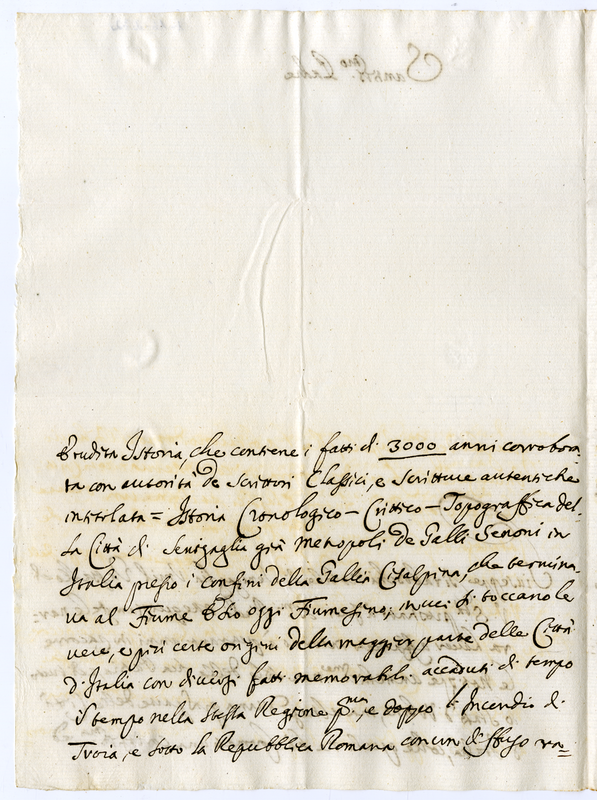 Erudita Istoria, che contiene i fatti di 3000 anni corrobora
ta con autorità de Scrittori Classici, e Scritture autentiche
intitolata = Istoria Cronologico - Crittico - Topograffica del-
la Città di Senigaglia già Metropoli De Galli Senoni in
Italia presso i confini della Gallia Cisalpina, che termina-
va al Fiume Esio oggi Fiumesino, in cui si toccano le
vere, e più certe origini della maggior parte delle Città
d'Italia con diversi fatti memorabili accaduti di tempo
in tempo nella stessa Regione pma, e doppo l'Incendio di
Troia, e sotto la Repubblica Romana con un diffuso ra=